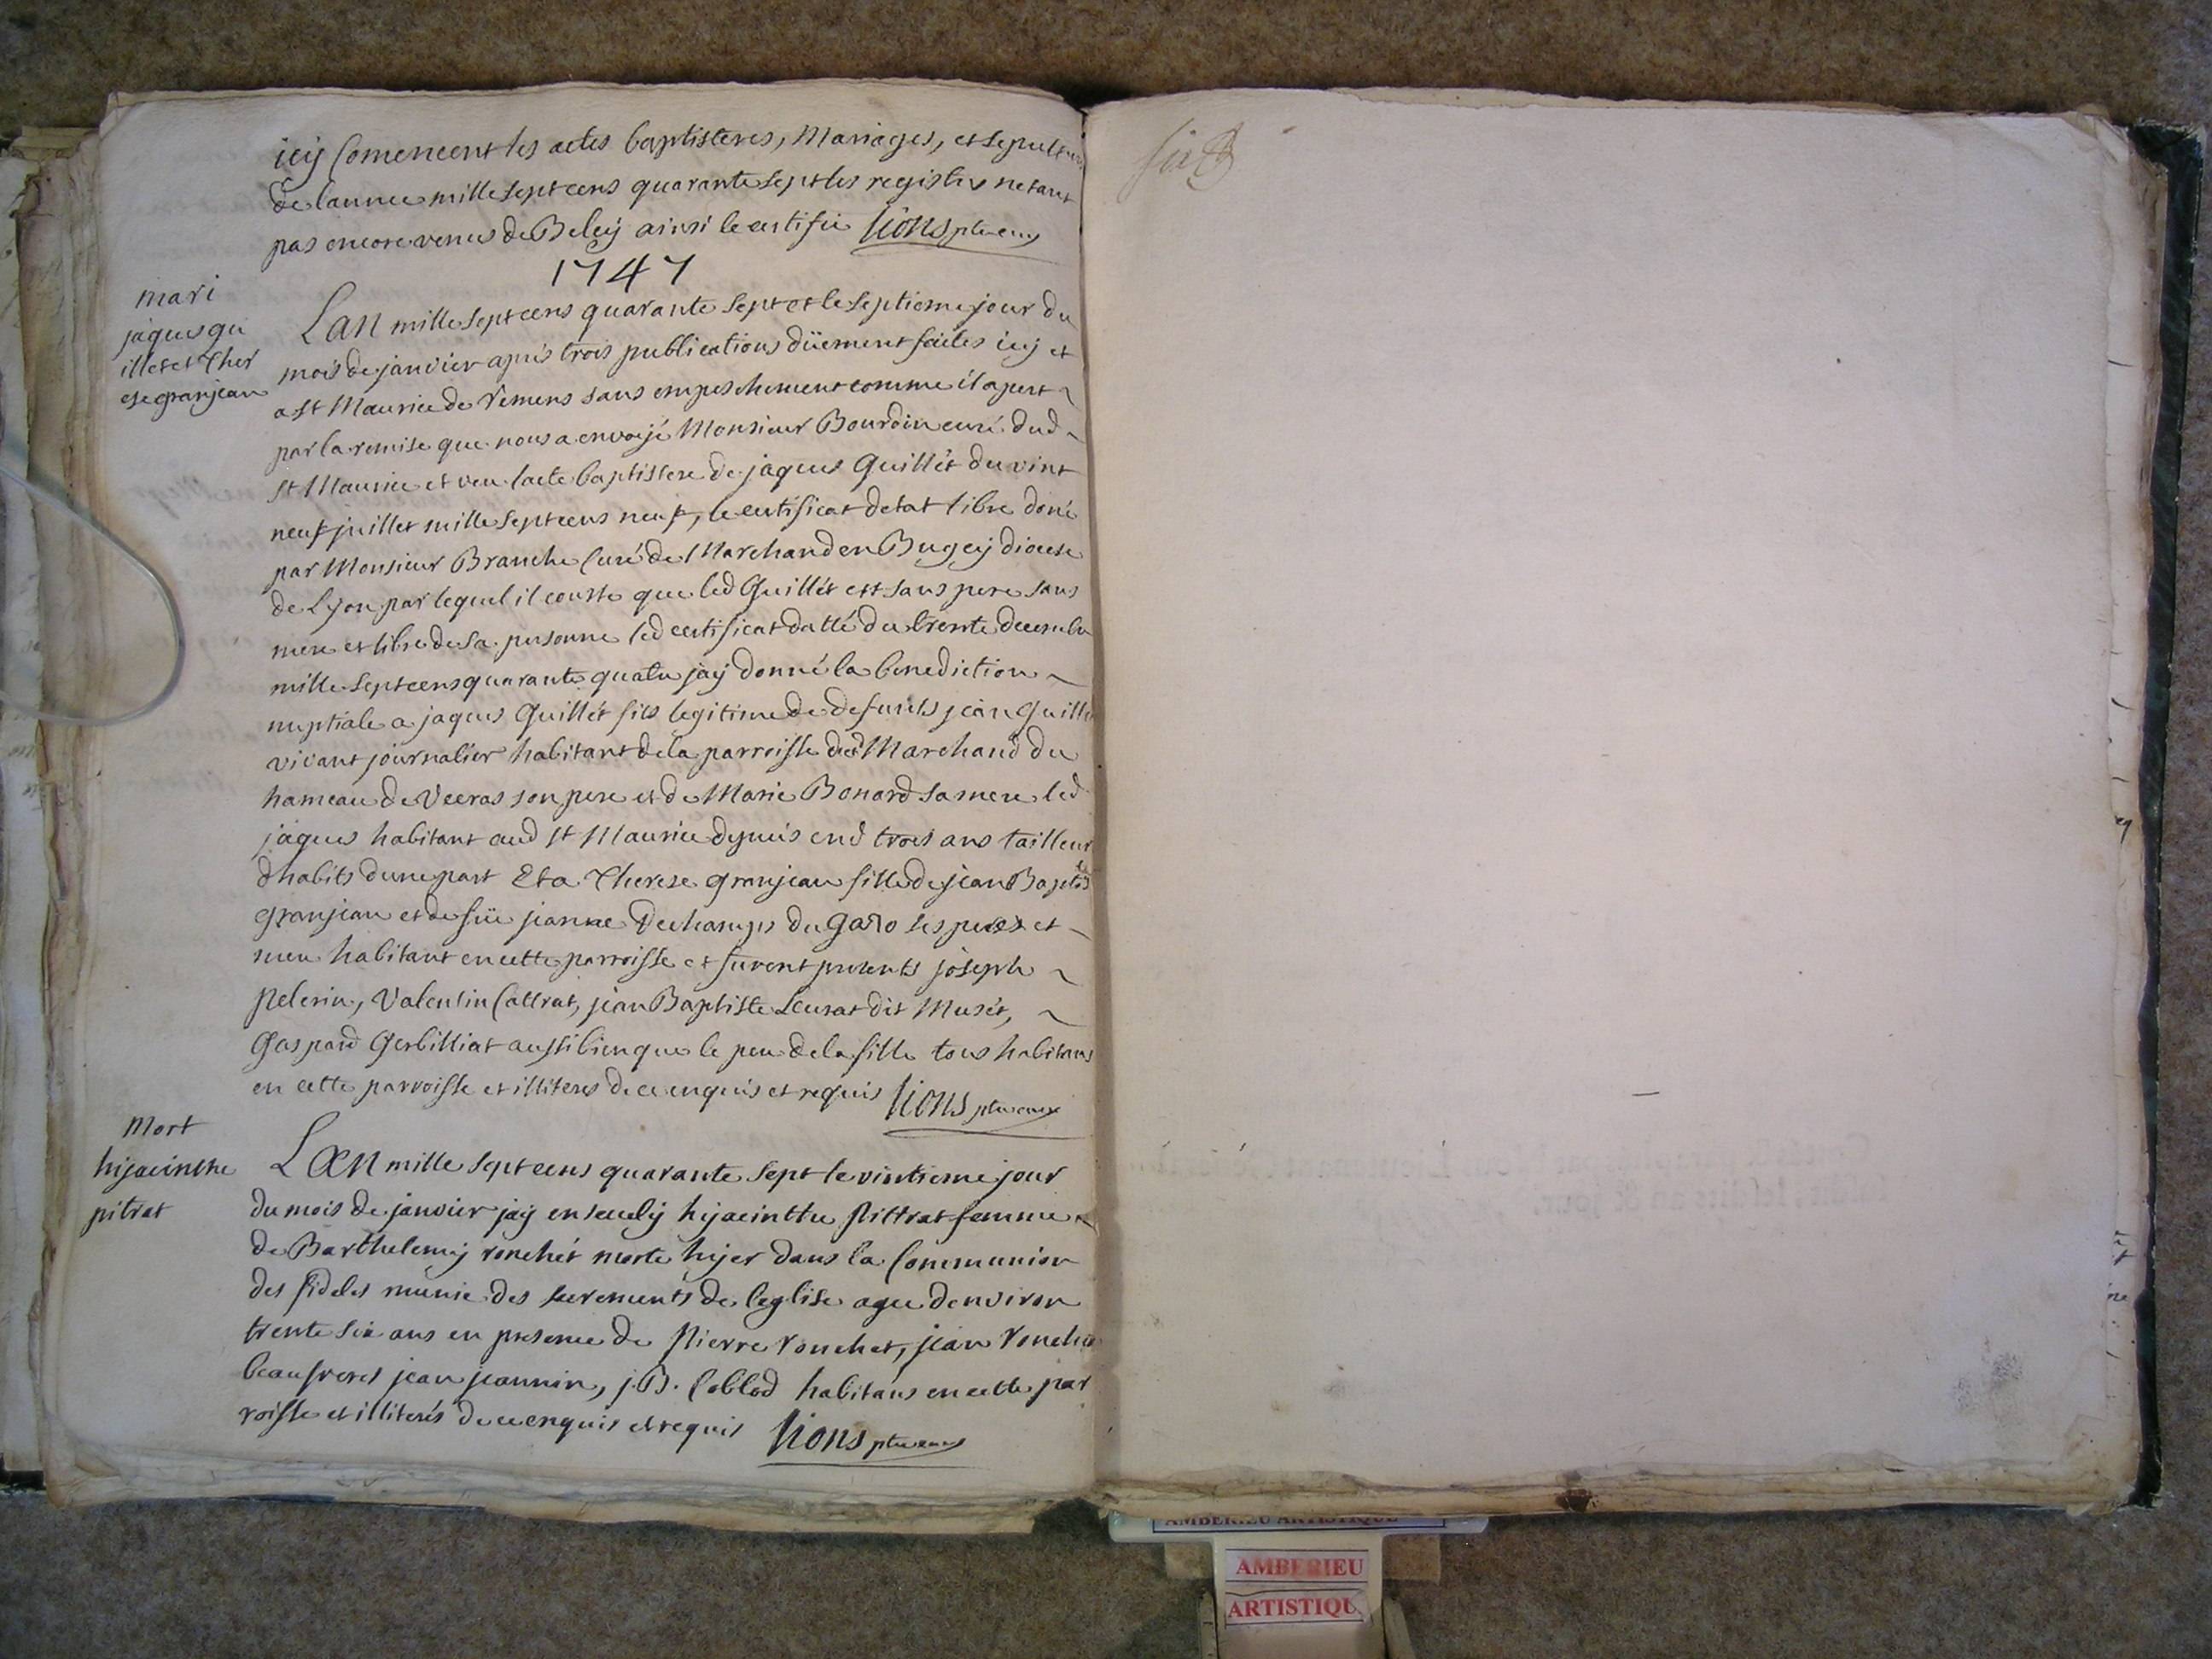 icy Comencent les actes baptisteres, Mariages, et sepultures
de lannee mille sept cens quarante sept les registres netant
pas encore venus de Beley ainsi le certifie Lions ptre curé
1747
mari
jaques gu
illet et Ther
ese granjean
Lan mille sept cens quarante sept et le septieme jour du
mois de janvier aprés trois publications düement faites icy et
a St Maurice de Remens sans empeschement comme il apert
par la remise que nous a envoyé Monsieur Bourdin curé dud
St Maurice et veu lacte baptistere de jaques Guillét du vint
neuf juillet mille sept cens neuf, le certificat detat libre doné
par Monsieur Branche Curé de Marchand en Bugey diocese
de Lyon par lequel il conste que led Guillét est sans pere sans
mere et libre de sa personne led certificat datté du trente decembre
mille sept cens quarante quatre jay donné la benediction
nuptiale a jaques Guillét fils legitime de defunts jean Guillet
vivant journalier habitant de la parroisse dud Marchand du
hameau de Veeras son pere et de Marie Bonard sa mere led
jaques habitant aud St Maurice depuis end trois ans tailleur
dhabits dune part Et a Therese granjean fille de jean Baptiste
granjean et de füe jeanne Dechamps du gado ses peres et
mere habitant en cette parroisse et furent presents joseph
Pelerin, Valentin Cattrat, jean Baptiste Leurat dit Musét,
Gaspard Gerbilliat aussi bien que le pere de la fille tous habitans
en cette parroisse et illiteres de ce enquis et requis Lions ptre curé
Mort
hijacinthe
pitrat
Lan mille sept cens quarante sept le vintieme jour
du mois de janvier jay ensevely hijacinthe Pittrat femme
de Barthelemy ronchét morte hijer dans la Communion
des fideles munie des sacrements de leglise agee denviron
trente six ans en presence de Pierre ronchet, jean Ronchet
beaufreres jean jeannin, j.B. Coblod habitans en cette par
roisse et illiterés de ce enquis et requis Lions ptre curé
AMBERIEU ARTISTIQUE
AMBERIEU
ARTISTIQU